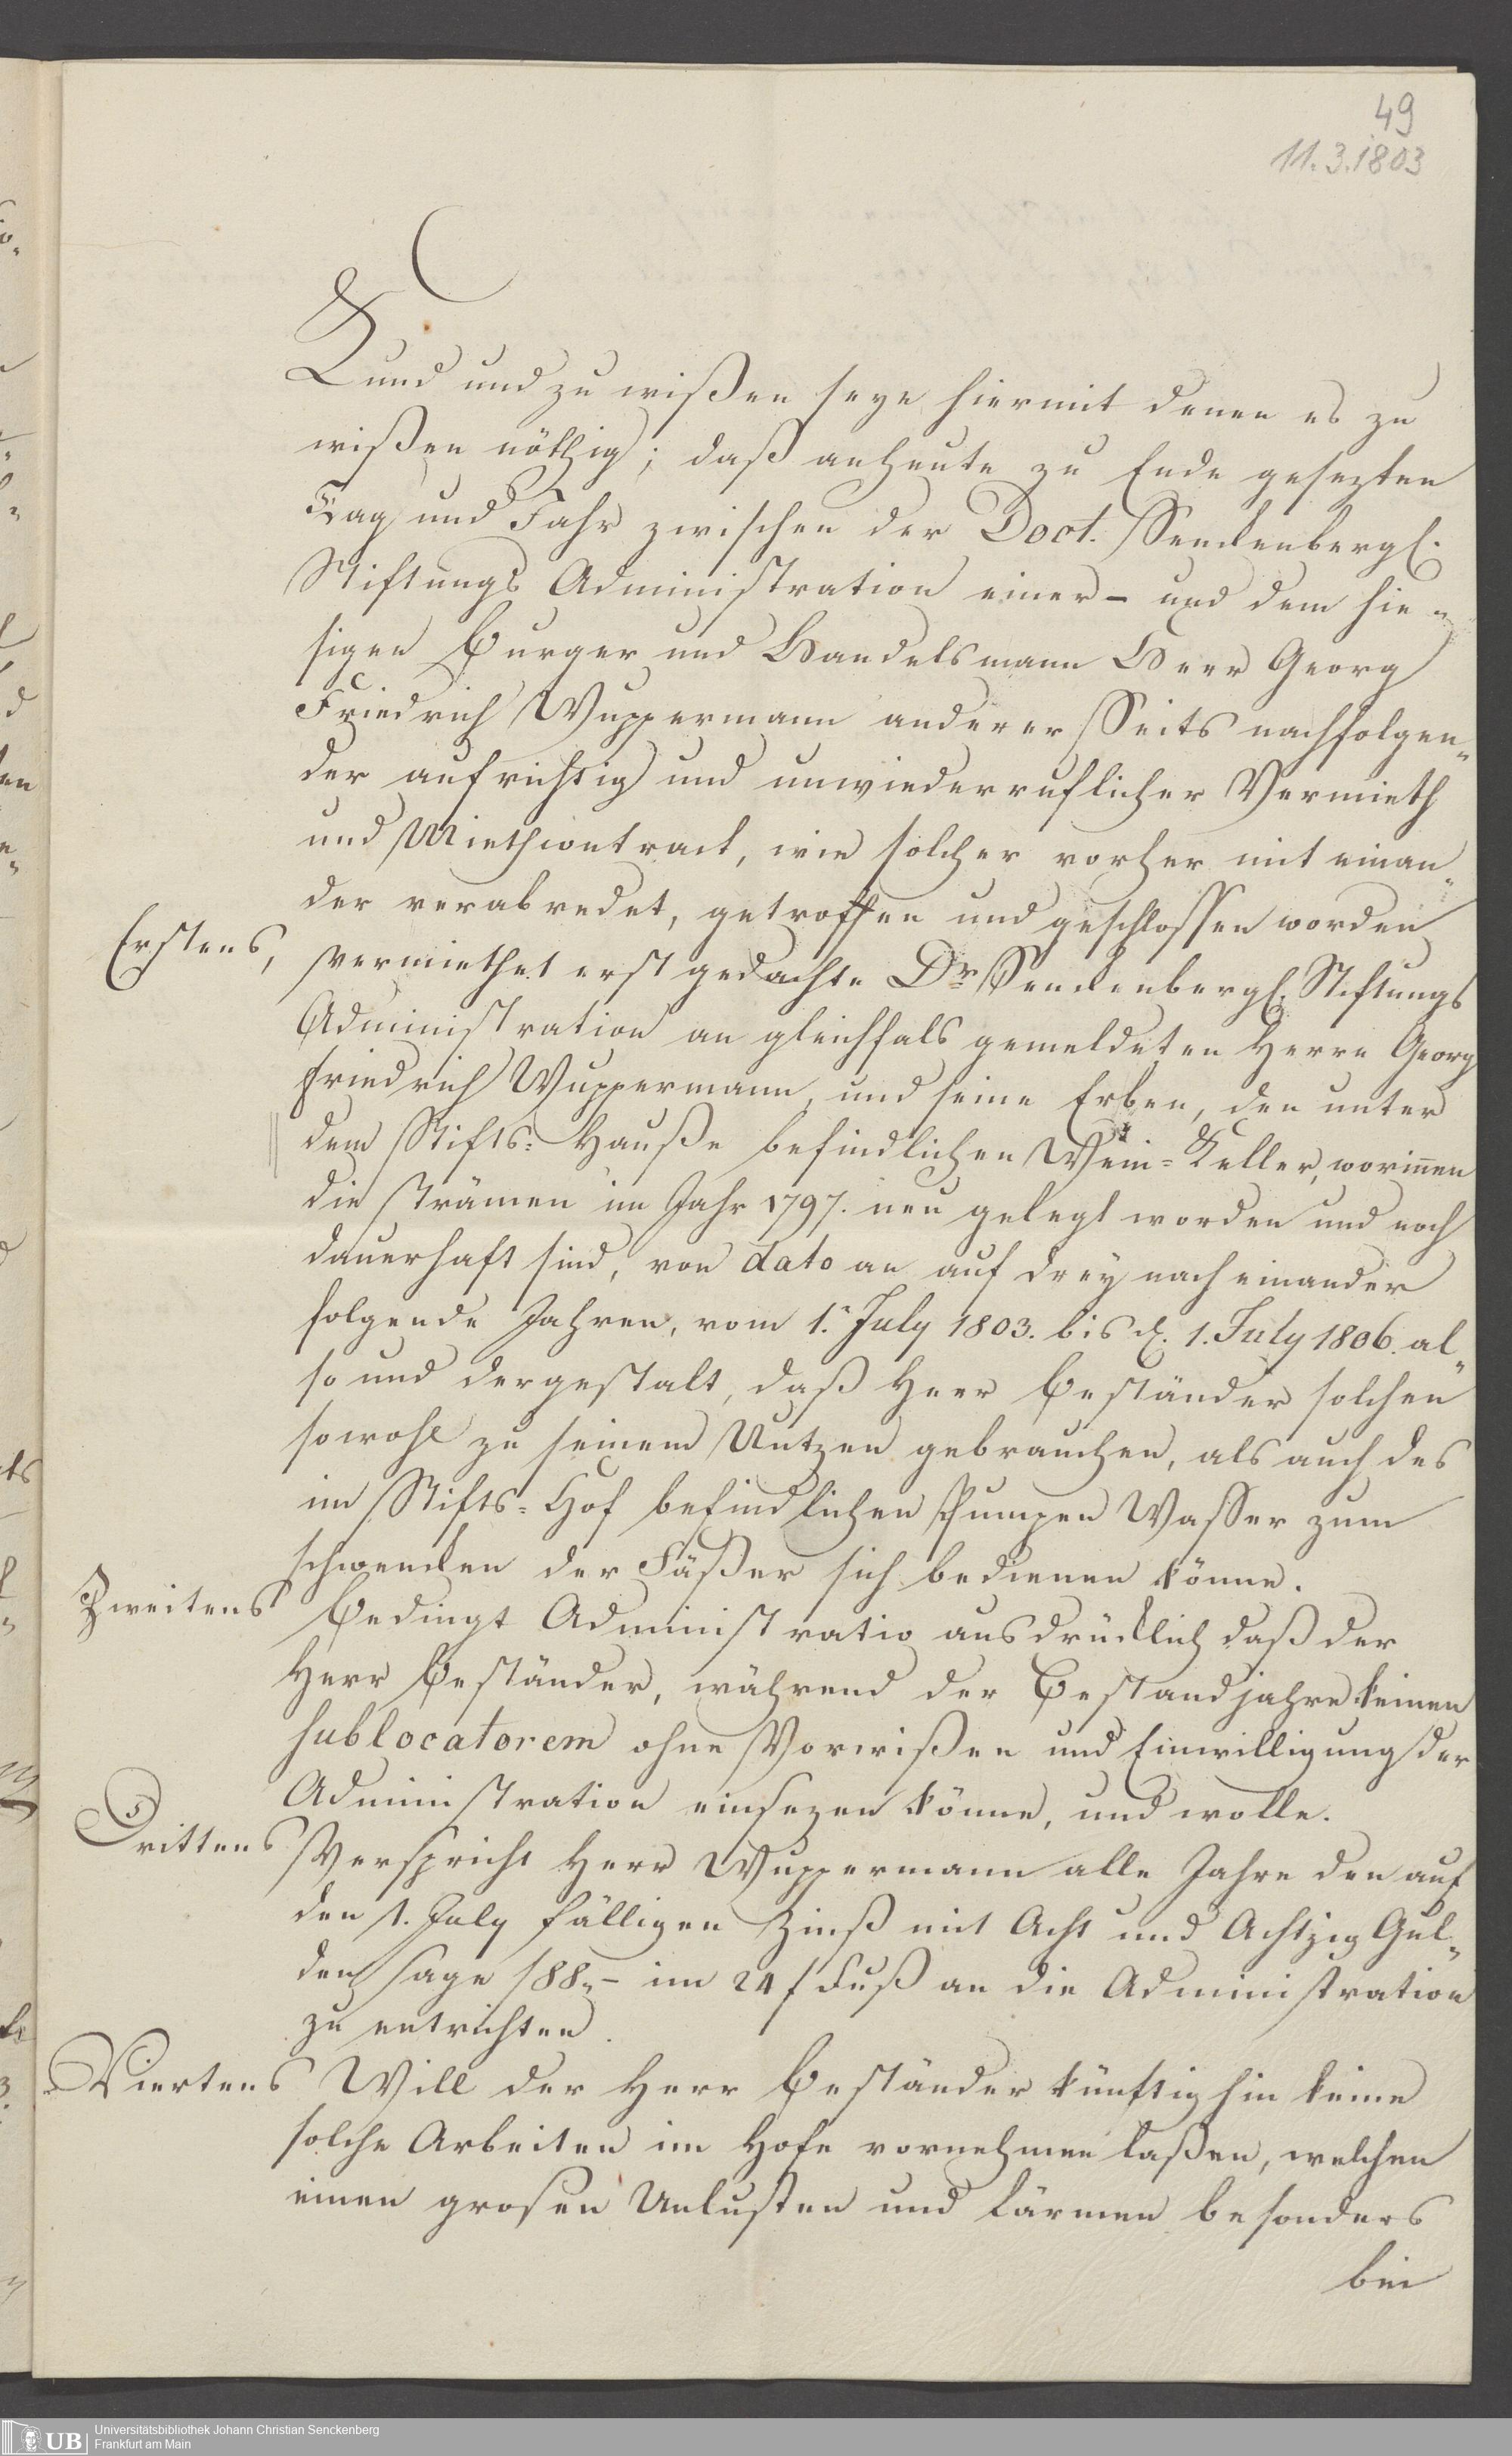 49
11.3.1803
Kund und zu wißen seye hiermit denen es zu
wißen nöthig; daß anheute zu Ende gesezten
Tag und Jahr zwischen der Doct. Senckenbergl.
Stiftungs Administration einer- und dem hie-
sigen Burger und Handelsmann Herr Georg
Friedrich Wuppermann anderer Seits nachfolgen-
der aufrichtig und unwiederruflicher Vermieth
und Miethcontract, wie solcher vorher mit einan-
der verabredet, getroffen und geschlossen worden
Erstens, vermiethet erst gedachte Dr. Senckenbergl. Stiftungs
Administration an gleichfals gemeldeten Herrn Georg
Friedrich Wuppermann, und seine Erben, den unter
dem Stifts-Hauße befindlichen Wein-Keller, worinnen
die strämen im Jahr 1797. neu gelegt worden und noch
dauerhaft sind, von dato an auf drey nach einander
folgende Jahren, vom 1. July 1803. bis d. 1. July 1806. al-
so und dergestalt, daß Herr Beständer solchen
sowohl zu seinem Nutzen gebrauchen, als auch des
im Stifts-Hof befindlichen Pumpen Wasser zum
schwencken der Fäßer sich bedienen könne.
Zweitens Bedingt Administratio ausdrücklich daß der
Herr Beständer, während der Bestandjahre keinen
sublocatorem ohne Vorwißen und Einwilligung der
Administration einsezen könne, und wolle.
Drittens Verspricht Herr Wuppermann alle Jahre den auf
den 1. July fälligen Zinß mit Acht und Achtzig Gul-
den sage f 88,- im 24 f Fuß an die Administration
zu entrichten.
Viertens Will der Herr Beständer künftighin keine
solche Arbeiten im Hofe vornehmen laßen, welchen
einen grosen Unlusten und Lärmen besonders
bei
UB Universitätsbibliothek Johann Christian Senckenberg
Frankfurt am Main